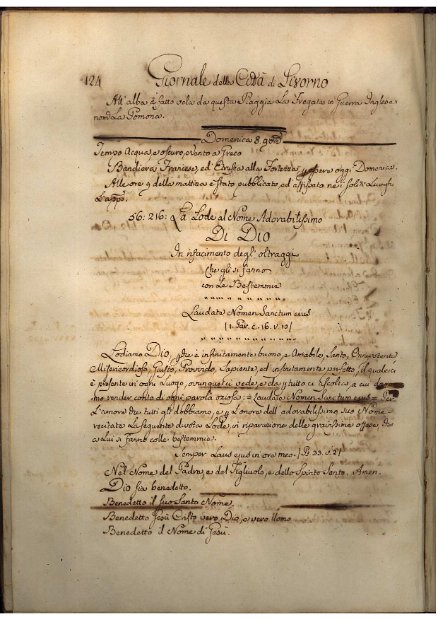 124 Giornale della Città di Livorno
All'alba è fatto vela da questa Piaggia La Fregata in Guerra Inglese
nom.a La Pomona.
Domenica 8.
Tempo Acqua, e oscuro, vento a Greco
Bandiera Francese, ed Estesa alla Fortezza oggi Domenica.
Alle ore 9 della mattina è stato pubblicato ed affissato nei soliti Luoghi
L'app.
56: 216: La Lode al Nome Adorabilissimo
Di Dio
In risarcimento degl'oltraggi
Che gli si fanno
con Le Bestemmie
Laudate Nomen Sanctum ejus
[1. Par. c. 16. v. 10]
Lodiamo Dio, che è infinitamente buono, e Amabile, Santo, Onnipotente
Misericordioso, Giusto, Provvido, Sapiente, ed infinitamente perfetto, il quale ci
è presente in ogni Luogo, ovunque ci vede, e da tutto ci ascolta, a cui dob
mo render conto di ogni parola oziosa. = Laudate Nomen Sanctum ejus =
L'amore che tutti gli dobbiamo, e p Lonore dell'adorabilissimo suo Nome
recitate La seguente divota Lode, in riparazione delle gravissime offese, che
a Lui si fanno colle bestemmie.
Semper Laus ejus in ore meo. [P. 33. v. 2]
Nel Nome del Padre, e del Figliuolo, e dello Spirito Santo. Amen.
Dio sia benedetto.
Benedetto il suo Santo Nome.
Benedetto Gesù Cristo vero Dio, e vero Uomo
Benedetto il Nome di Gesù.